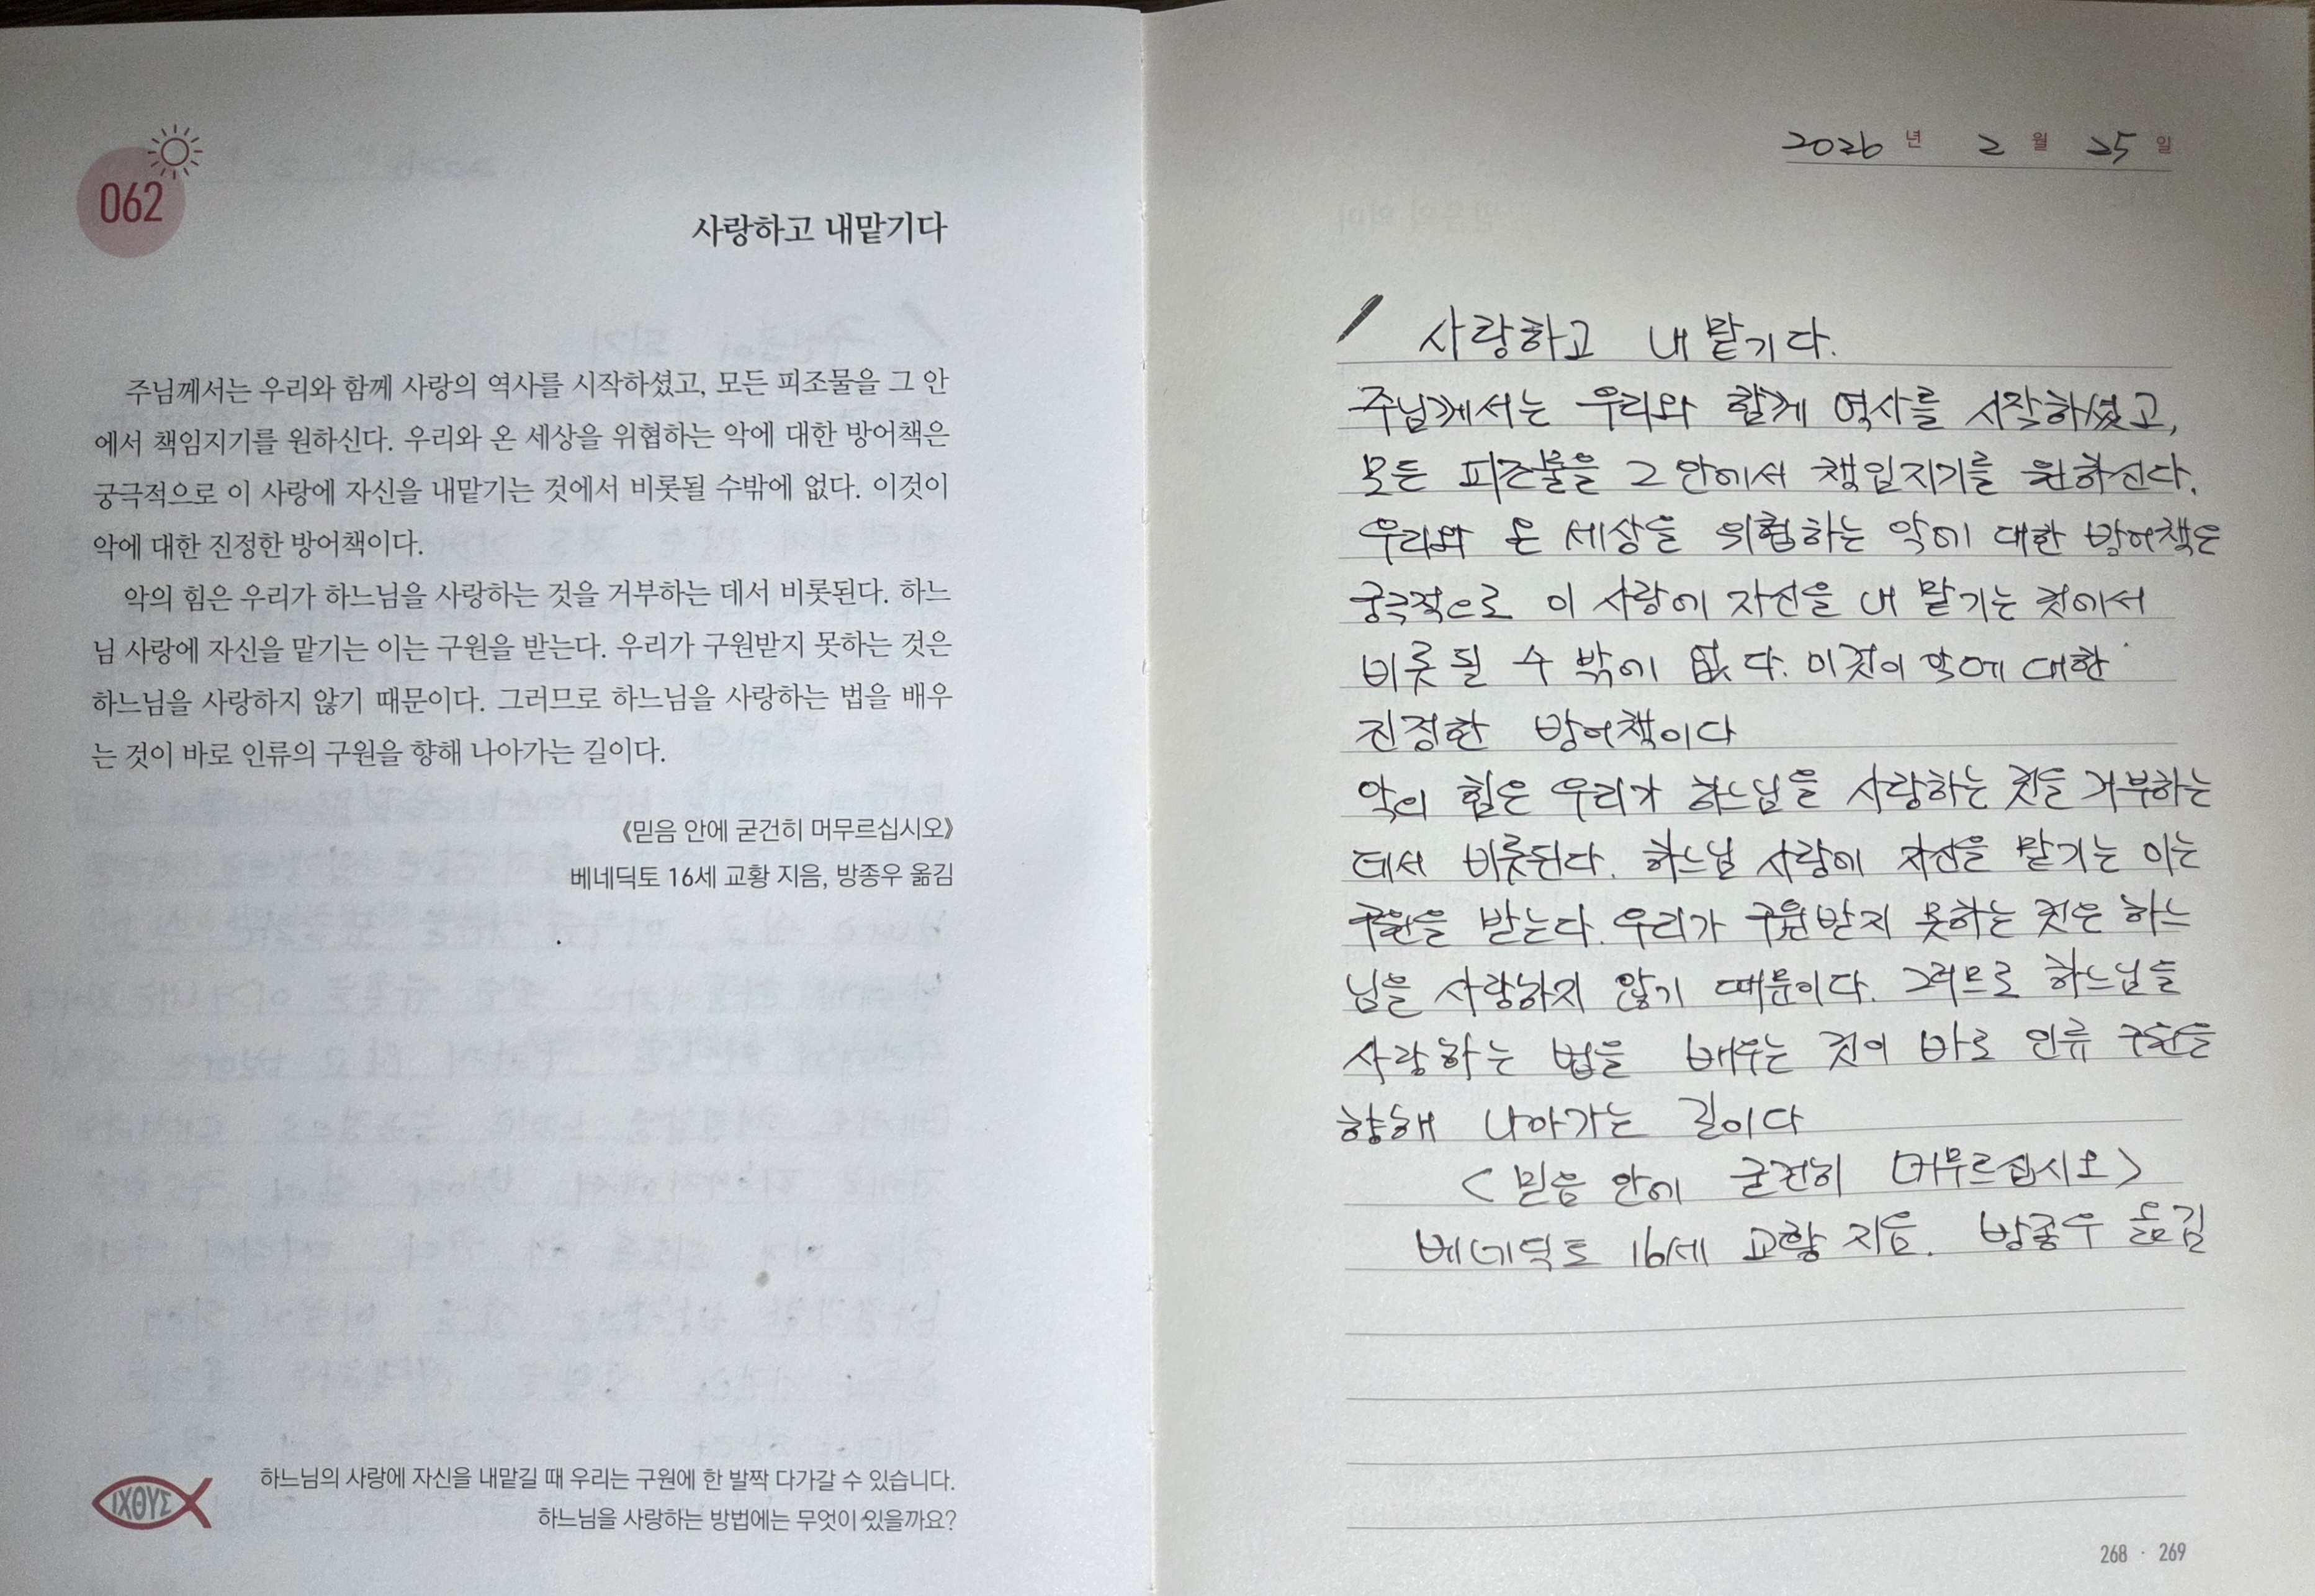 062
사랑하고 내맡기다
주님께서는 우리와 함께 사랑의 역사를 시작하셨고, 모든 피조물을 그 안
에서 책임지기를 원하신다. 우리와 온 세상을 위협하는 악에 대한 방어책은
궁극적으로 이 사랑에 자신을 내맡기는 것에서 비롯될 수밖에 없다. 이것이
악에 대한 진정한 방어책이다.
악의 힘은 우리가 하느님을 사랑하는 것을 거부하는 데서 비롯된다. 하느
님 사랑에 자신을 맡기는 이는 구원을 받는다. 우리가 구원받지 못하는 것은
하느님을 사랑하지 않기 때문이다. 그러므로 하느님을 사랑하는 법을 배우
는 것이 바로 인류의 구원을 향해 나아가는 길이다.
《믿음 안에 굳건히 머무르십시오》
베네딕토 16세 교황 지음, 방종우 옮김
ΙΧΘΥΣ
하느님의 사랑에 자신을 내맡길 때 우리는 구원에 한 발짝 다가갈 수 있습니다.
하느님을 사랑하는 방법에는 무엇이 있을까요?
2026 년 2 월 25 일
사랑하고 내 맡기다.
주님께서는 우리와 함께 역사를 시작하셨고,
모든 피조물을 그 안에서 책임지기를 원하신다.
우리와 온 세상을 위협하는 악에 대한 방어책은
궁극적으로 이 사랑에 자신을 내 맡기는 것에서
비롯될 수 밖에 없다. 이것이 악에 대한
진정한 방어책이다
악의 힘은 우리가 하느님을 사랑하는 것을 거부하는
데서 비롯된다. 하느님 사랑에 자신을 맡기는 이는
구원을 받는다. 우리가 구원받지 못하는 것은 하느
님을 사랑하지 않기 때문이다. 그러므로 하느님을
사랑하는 법을 배우는 것이 바로 인류 구원을
향해 나아가는 길이다
<믿음 안에 굳건히 머무르십시오>
베네딕토 16세 교황 지음. 방종우 옮김
268 · 269